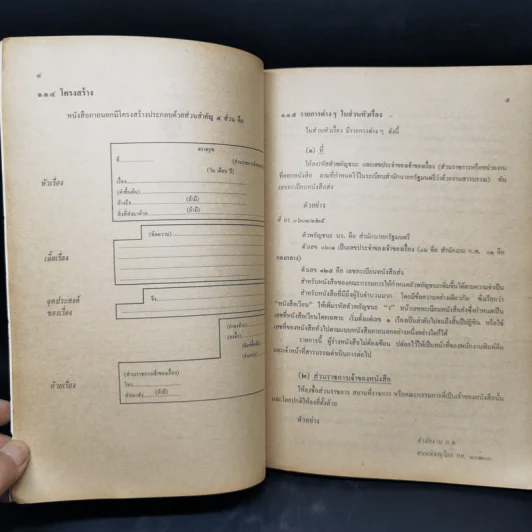 ๔
๑.๑.๔ โครงสร้าง
หนังสือภายนอกมีโครงสร้างประกอบด้วยส่วนสำคัญ ๔ ส่วน คือ
หัวเรื่อง
ตราครุฑ
ที่
(วัน เดือน ปี)
เรื่อง
(คำขึ้นต้น)
อ้างถึง (ถ้ามี)
สิ่งที่ส่งมาด้วย (ถ้ามี)
เนื้อเรื่อง
(ข้อความ)
จุดประสงค์
ของเรื่อง
จึง
ท้ายเรื่อง
(ส่วนราชการเจ้าของเรื่อง)
โทร.
สำเนาส่ง (ถ้ามี)
๕
๑.๑.๕ รายการต่าง ๆ ในส่วนหัวเรื่อง
ในส่วนหัวเรื่อง มีรายการต่าง ๆ ดังนี้
(๑) ที่
ให้ลงรหัสตัวพยัญชนะ และเลขประจำของเจ้าของเรื่อง (ส่วนราชการหรือหน่วยงาน
ที่ออกหนังสือ ตามที่กำหนดไว้ในระเบียบสำนักนายกรัฐมนตรีว่าด้วยงานสารบรรณ) ทับ
เลขทะเบียนหนังสือส่ง
ตัวอย่าง
ตัวพยัญชนะ นร. คือ สำนักนายกรัฐมนตรี
ตัวเลข ๐๖๐๑ เป็นเลขประจำของเจ้าของเรื่อง (๐๖ คือ สำนักงาน ก.พ. ๐๑ คือ
กองกลาง)
ตัวเลข ๑๒๕ คือ เลขทะเบียนหนังสือส่ง
สำหรับหนังสือของคณะกรรมการให้กำหนดตัวพยัญชนะเพิ่มขึ้นได้ตามความจำเป็น
สำหรับหนังสือที่มีถึงผู้รับจำนวนมาก โดยมีข้อความอย่างเดียวกัน ซึ่งเรียกว่า
"หนังสือเวียน" ให้เพิ่มรหัสตัวพยัญชนะ "ว" หน้าเลขทะเบียนหนังสือส่งซึ่งกำหนดเป็น
เลขที่หนังสือเวียนโดยเฉพาะ เริ่มตั้งแต่เลข ๑ เรียงเป็นลำดับไปจนถึงสิ้นปีปฏิทิน หรือใช้
เลขที่ของหนังสือทั่วไปตามแบบหนังสือภายนอกอย่างหนึ่งอย่างใดก็ได้
รายการนี้ ผู้ร่างหนังสือไม่ต้องเขียน ปล่อยไว้ให้เป็นหน้าที่ของพนักงานพิมพ์ดีด
และเจ้าหน้าที่สารบรรณดำเนินการต่อไป
(๒) ส่วนราชการเจ้าของหนังสือ
ให้ลงชื่อส่วนราชการ สถานที่ราชการ หรือคณะกรรมการที่เป็นเจ้าของหนังสือนั้น
และโดยปกติให้ลงที่ตั้งด้วย
ตัวอย่าง
สำนักงาน ก.พ.
ถนนพิษณุโลก กท.